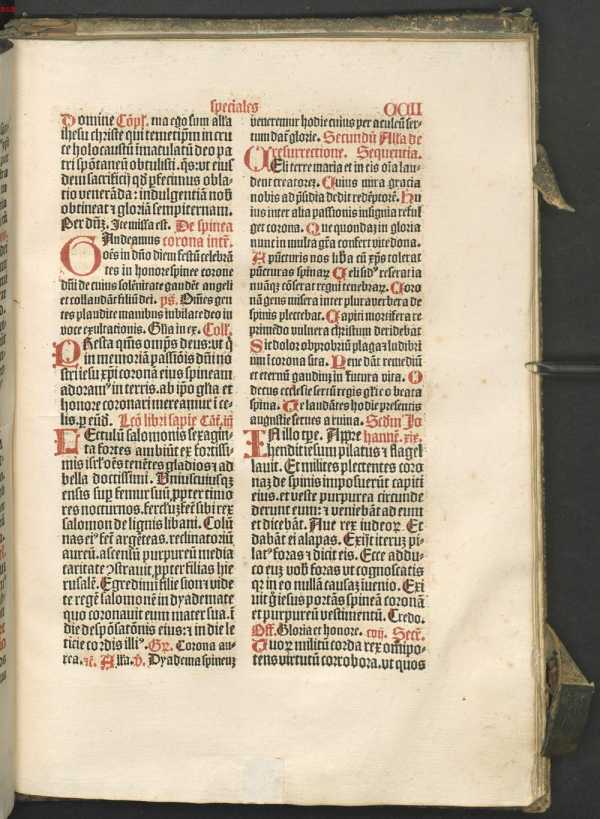 speciales CCII
Domine Cōpl. ma ego sum alfa
ihesu christe qui temetipm in cru
ce holocaustū imaculatū deo pa
tri spōtaneū obtulisti. qs: vt eius
dem sacrificij qd pfecimus obla
tio venerāda: indulgentiā nob
obtineat ⁊ gloriā sempiternam.
Per dn̄ʒ. Ite missa est. De spinea
GAudeamus corona intr̄.
oēs in dn̄o diem festū celebrā
tes in honore spinee corone
dn̄i de cuius solēnitate gaudēt angeli
et collaudāt filiū dei. ps. Om̄es gen
tes plaudite manibus iubilate deo in
voce exultationis. Glīa in ex. Coll.
PResta qs̄m̄s omps deus: vt q
in memoriā passiōis dn̄i no
stri iesu xp̄i coronā eius spineam
adoramꝰ in terris. ab ip̄o gl̄ia et
honore coronari mereamur ī ce
lis. p eūd. Lcō libri sapīe Cāt. iij
LEctulū salomonis sexagin
ta fortes ambiūt ex fortissi
mis isrl' oēs tenētes gladios ⁊ ad
bella doctissimi. Vniuscuiusqꝫ
ensis sup femur suū ꝓpter timo
res nocturnos. ferclūʒ fecͭ sibi rex
salomon de lignis libani. Colū
nas eiꝰ fecͭ argēteas. reclinatoriū
aureū. ascensū purpureū media
caritate ꝯstrauit ꝓpter filias hie
rusalē. Egredimī filie sion ⁊ vide
te regē salomonē in dyademate
quo coronauit eum mater sua. ī
die despōsatōnis eius: ⁊ in die le
ticie cordis illiꝰ. Gr. Corona au-
rea. ⁊c̄. Alla. v. Dyadema spineuʒ
veneremur hodie cuius per aculeū ser-
tum dat̄ glorie. Secundū Alla de
resurrectione. Sequentia.
CEli terre maria et in eis oīa lau-
dent creatorez. Cuius mira gracia
nobis ad p̄sidia dedit redēptorē. Hu
ius inter alia passionis insignia reful
get corona. Que quondaʒ in gloria
nunc in multa gr̄a confert vite dona.
A pūcturis nos lib̄a cū xp̄s tolerat
pūcturas spinaꝝ Celisqꝫ reseratia
nūqꝫ cōserat regni tenebraꝝ. Coro
nā gens misera inter plura verbera de
spinis plectebat. Capiti mortifera re
primēdo vulnera christum deridebat
Sic dolor obprobriū plaga ⁊ ludibri
um ī corona sita. Pene dāt remediū
et eternū gaudiuʒ in futura vita. O
decus ecclesie sertū regis gl̄ie o beata
spina. Te laudātes hodie presentis
augustie serues a ruina. Scdm Jo
IN illo tpe. Appre hannē. xix.
hendit iesum pilatus ⁊ flagel
lauit. Et milites plectentes coro
naʒ de spinis imposuerūt capiti
eius. et veste purpurea circunde
derunt eum: ⁊ veniebāt ad eum
et dicebāt. Aue rex iudeoꝝ. Et
dabāt ei alapas. Exijt iteruʒ pi-
latꝰ foras ⁊ dicit eis. Ecce addu-
co euʒ vob̄ foras vt cognoscatis
qꝛ in eo nullā causaʒ iuenio. Exi
uit g̊ iesus portās spineā coronā
et purpureū vestimentū. Credo.
Off. Gloria et honore. coij. Secr̄.
TUoꝝ militū corda rex om̄ipo-
tens virtutū corrobora. vt quos